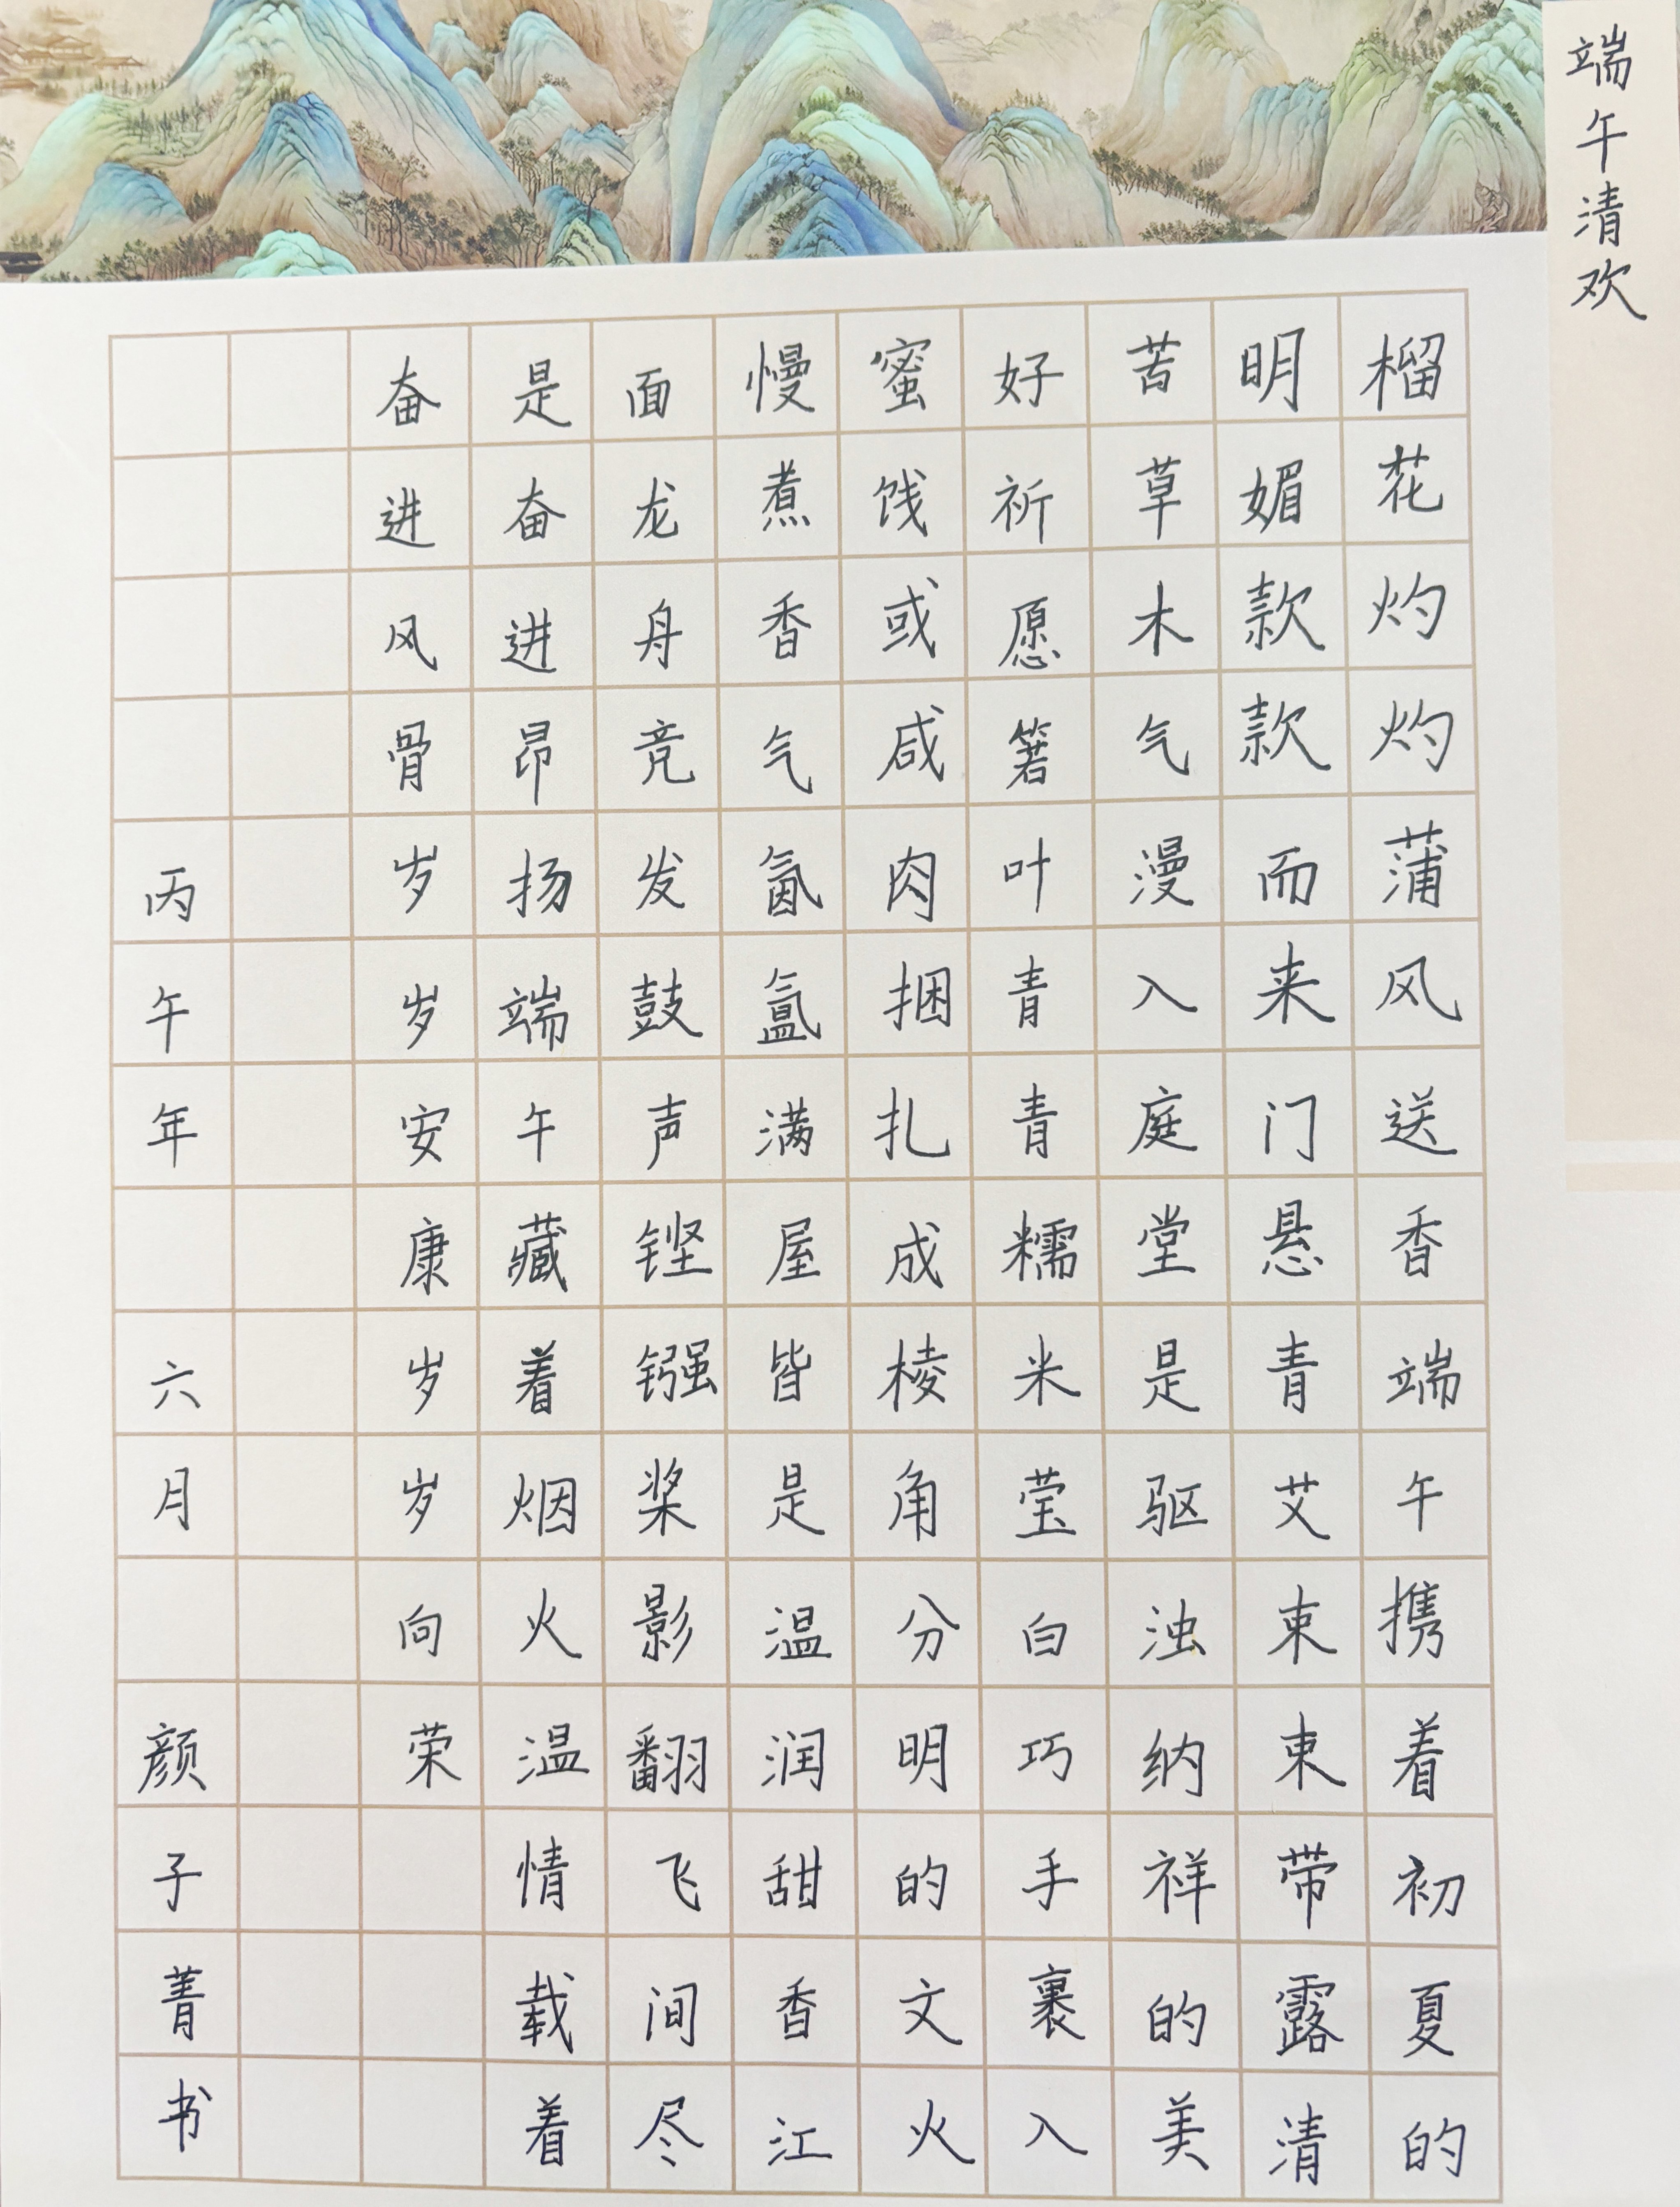 端午清欢
榴花灼灼蒲风送香端午携着初夏的
明媚款款而来门悬青艾束束带露清
苦草木气漫入庭堂是驱浊纳祥的美
好祈愿箬叶青青糯米莹白巧手裹入
蜜饯或咸肉捆扎成棱角分明的文火
慢煮香气氤氲满屋皆是温润甜香江
面龙舟竞发鼓声铿镪桨影翻飞间尽
是奋进昂扬端午藏着烟火温情载着
奋进风骨岁岁安康岁岁向荣
丙午年 六月 颜子菁书